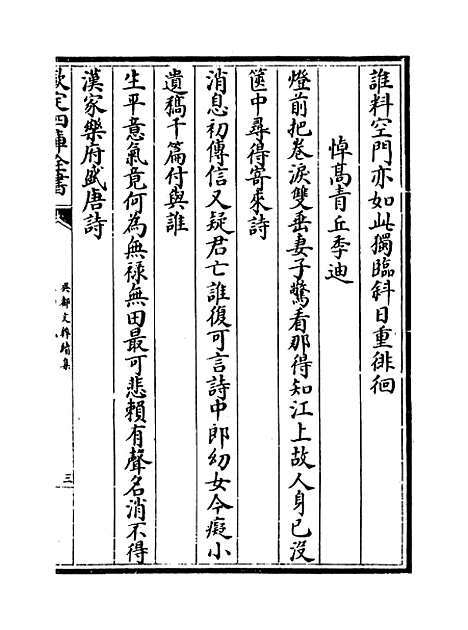 誰料空門亦如此獨臨斜日重徘徊
悼髙青丘季迪
燈前把卷淚雙垂妻子驚看那得知江上故人身已沒
篋中尋得寄來詩
消息初傳信又疑君亡誰復可言詩中郎幼女今癡小
遺稿千篇付與誰
生平意氣竟何為無禄無田最可悲賴有聲名消不得
漢家樂府盛唐詩
欽定四庫全書
吳都文粹續集
三